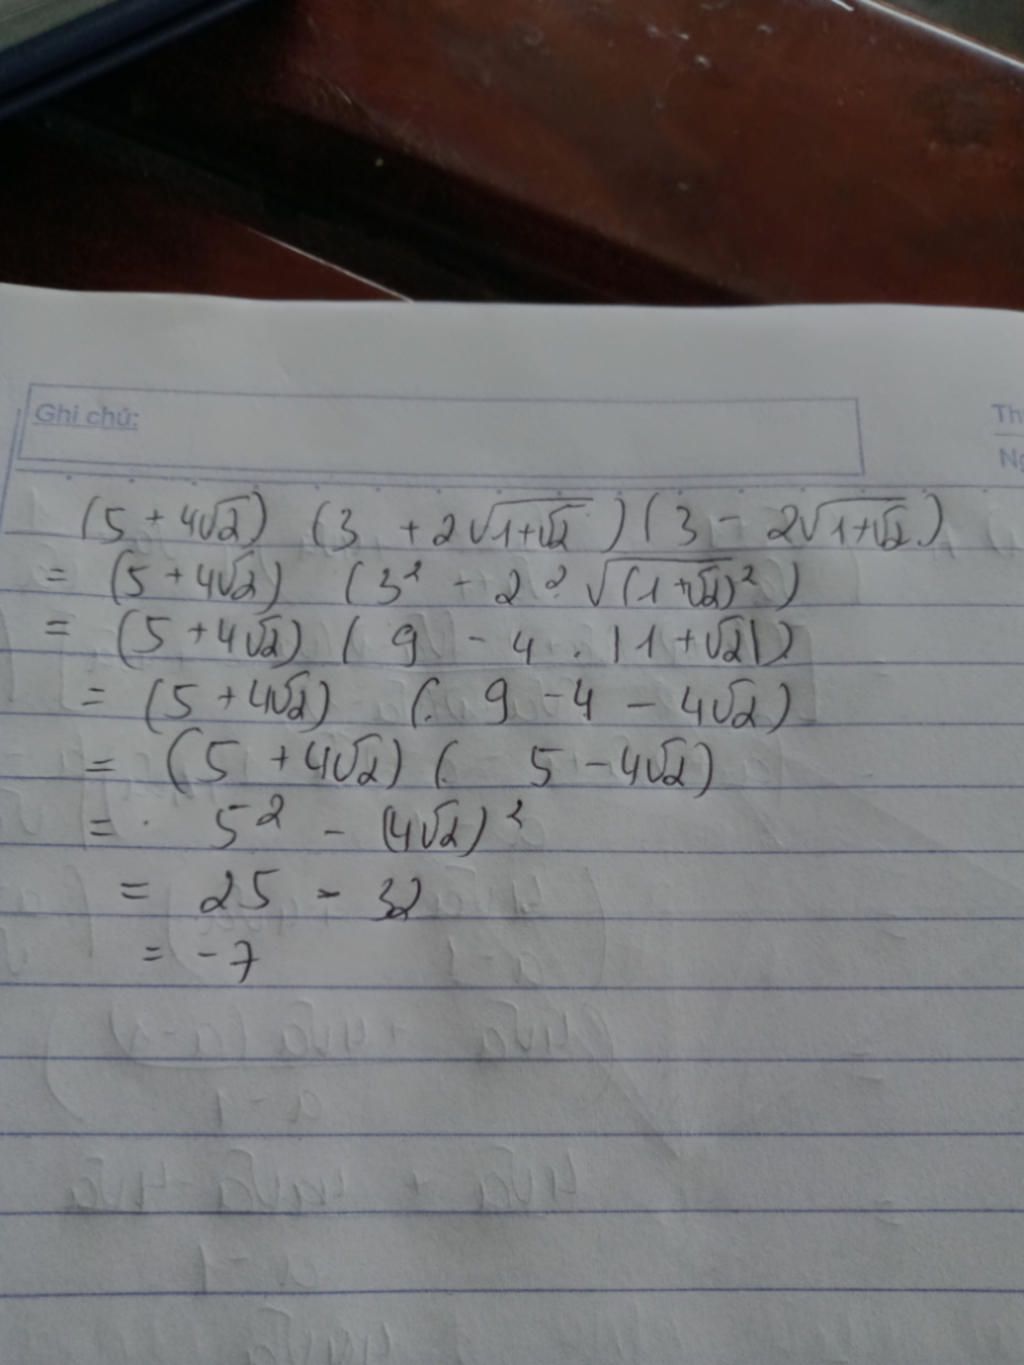 Ghi chú:
Th
Ng
(5 + 4√2) (3 + 2√(1+√2)) (3 - 2√(1+√2))
= (5 + 4√2) (3² - 2². √((1+√2)²))
= (5 + 4√2) ( 9 - 4 . |1 + √2|)
= (5 + 4√2) ( 9 - 4 - 4√2)
= (5 + 4√2) ( 5 - 4√2)
= 5² - (4√2)²
= 25 - 32
= -7